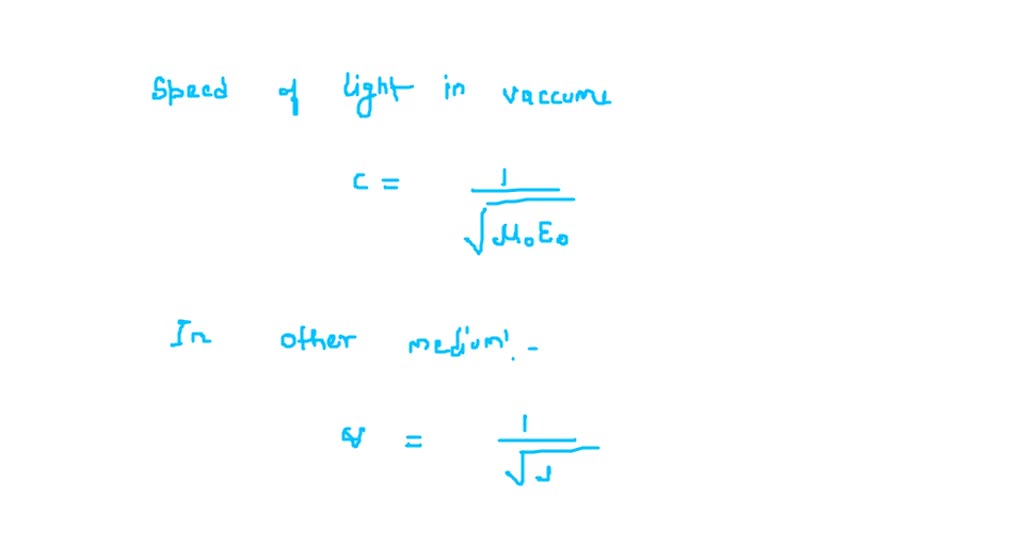 Speed of light in vaccume
c = 1 / √μ₀ε₀
In other medium! -
v = 1 / √